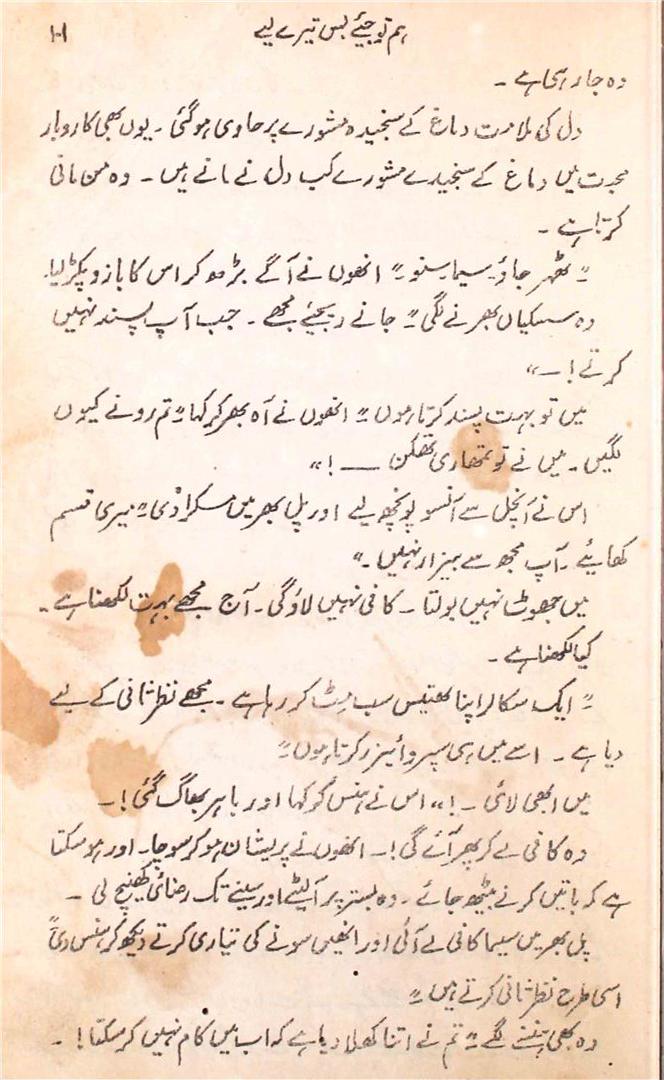 ہم تو جیئے بس تیرے لیے ۱۰۱
وہ جا رہی ہے ۔
دل کی ملامت دماغ کے سنجیدہ مشورے پر حاوی ہو گئی ۔ یوں بھی کاروبار
محبت میں دماغ کے سنجیدے مشورے کب دل نے مانے ہیں ۔ وہ من مانی
کرتا ہے ۔
"ٹھہر جاؤ سیما سنو" انھوں نے آگے بڑھ کر اس کا بازو پکڑ لیا۔
وہ سسکیاں بھرنے لگی "جانے دیجئے مجھے ۔ جب آپ پسند نہیں
کرتے! ـــ"
میں تو بہت پسند کرتا ہوں" انھوں نے آہ بھر کر کہا "تم رونے کیوں
لگیں ۔ میں نے تو تمھاری تھکن ـــــ !"
اس نے آنچل سے آنسو پونچھ لیے اور پل بھر میں مسکرا دی "میری قسم
کھائیے ۔ آپ مجھ سے بیزار نہیں ۔"
میں جھوٹ نہیں بولتا ۔ کافی نہیں لاؤ گی ۔ آج مجھے بہت لکھنا ہے ۔
کیا لکھنا ہے ۔
"ایک سکالر اپنا تھیسس سب مٹ کر رہا ہے ۔ مجھے نظر ثانی کے لیے
دیا ہے ۔ اسے میں ہی سپروائیزر کرتا ہوں"
میں ابھی لائی ۔!" اس نے ہنس کو کہا اور باہر بھاگ گئی !۔
وہ کافی لے کر پھر آئے گی !۔ انھوں نے پریشان ہو کر سوچا۔ اور ہو سکتا
ہے کہ باتیں کرنے بیٹھ جائے ۔ وہ بستر پر آ لیٹے اور سینے تک رضائی کھینچ لی ۔
پل بھر میں سیما کافی لے آئی اور انھیں سونے کی تیاری کرتے دیکھ کر ہنس دی"
اسی طرح نظر ثانی کرتے ہیں"
وہ بھی ہنسنے لگے "تم نے اتنا کھلا دیا ہے کہ اب میں کام نہیں کر سکتا !۔